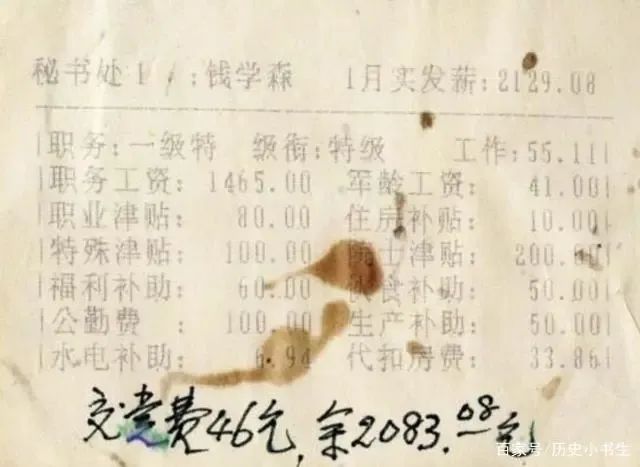 秘书处1 ;钱学森 1月实发薪:2129.08
职务:一级特 级衔:特级 工作:55.11
职务工资: 1465.00 军龄工资: 41.00
职业津贴: 80.00 住房补贴: 10.00
特殊津贴: 100.00 院士津贴: 200.00
福利补助: 60.00 伙食补助: 50.00
公勤费 : 100.00 生产补助: 50.00
水电补助: 6.94 代扣房费: 33.86
交党费46元,余2083.08元
百家号/历史小书生